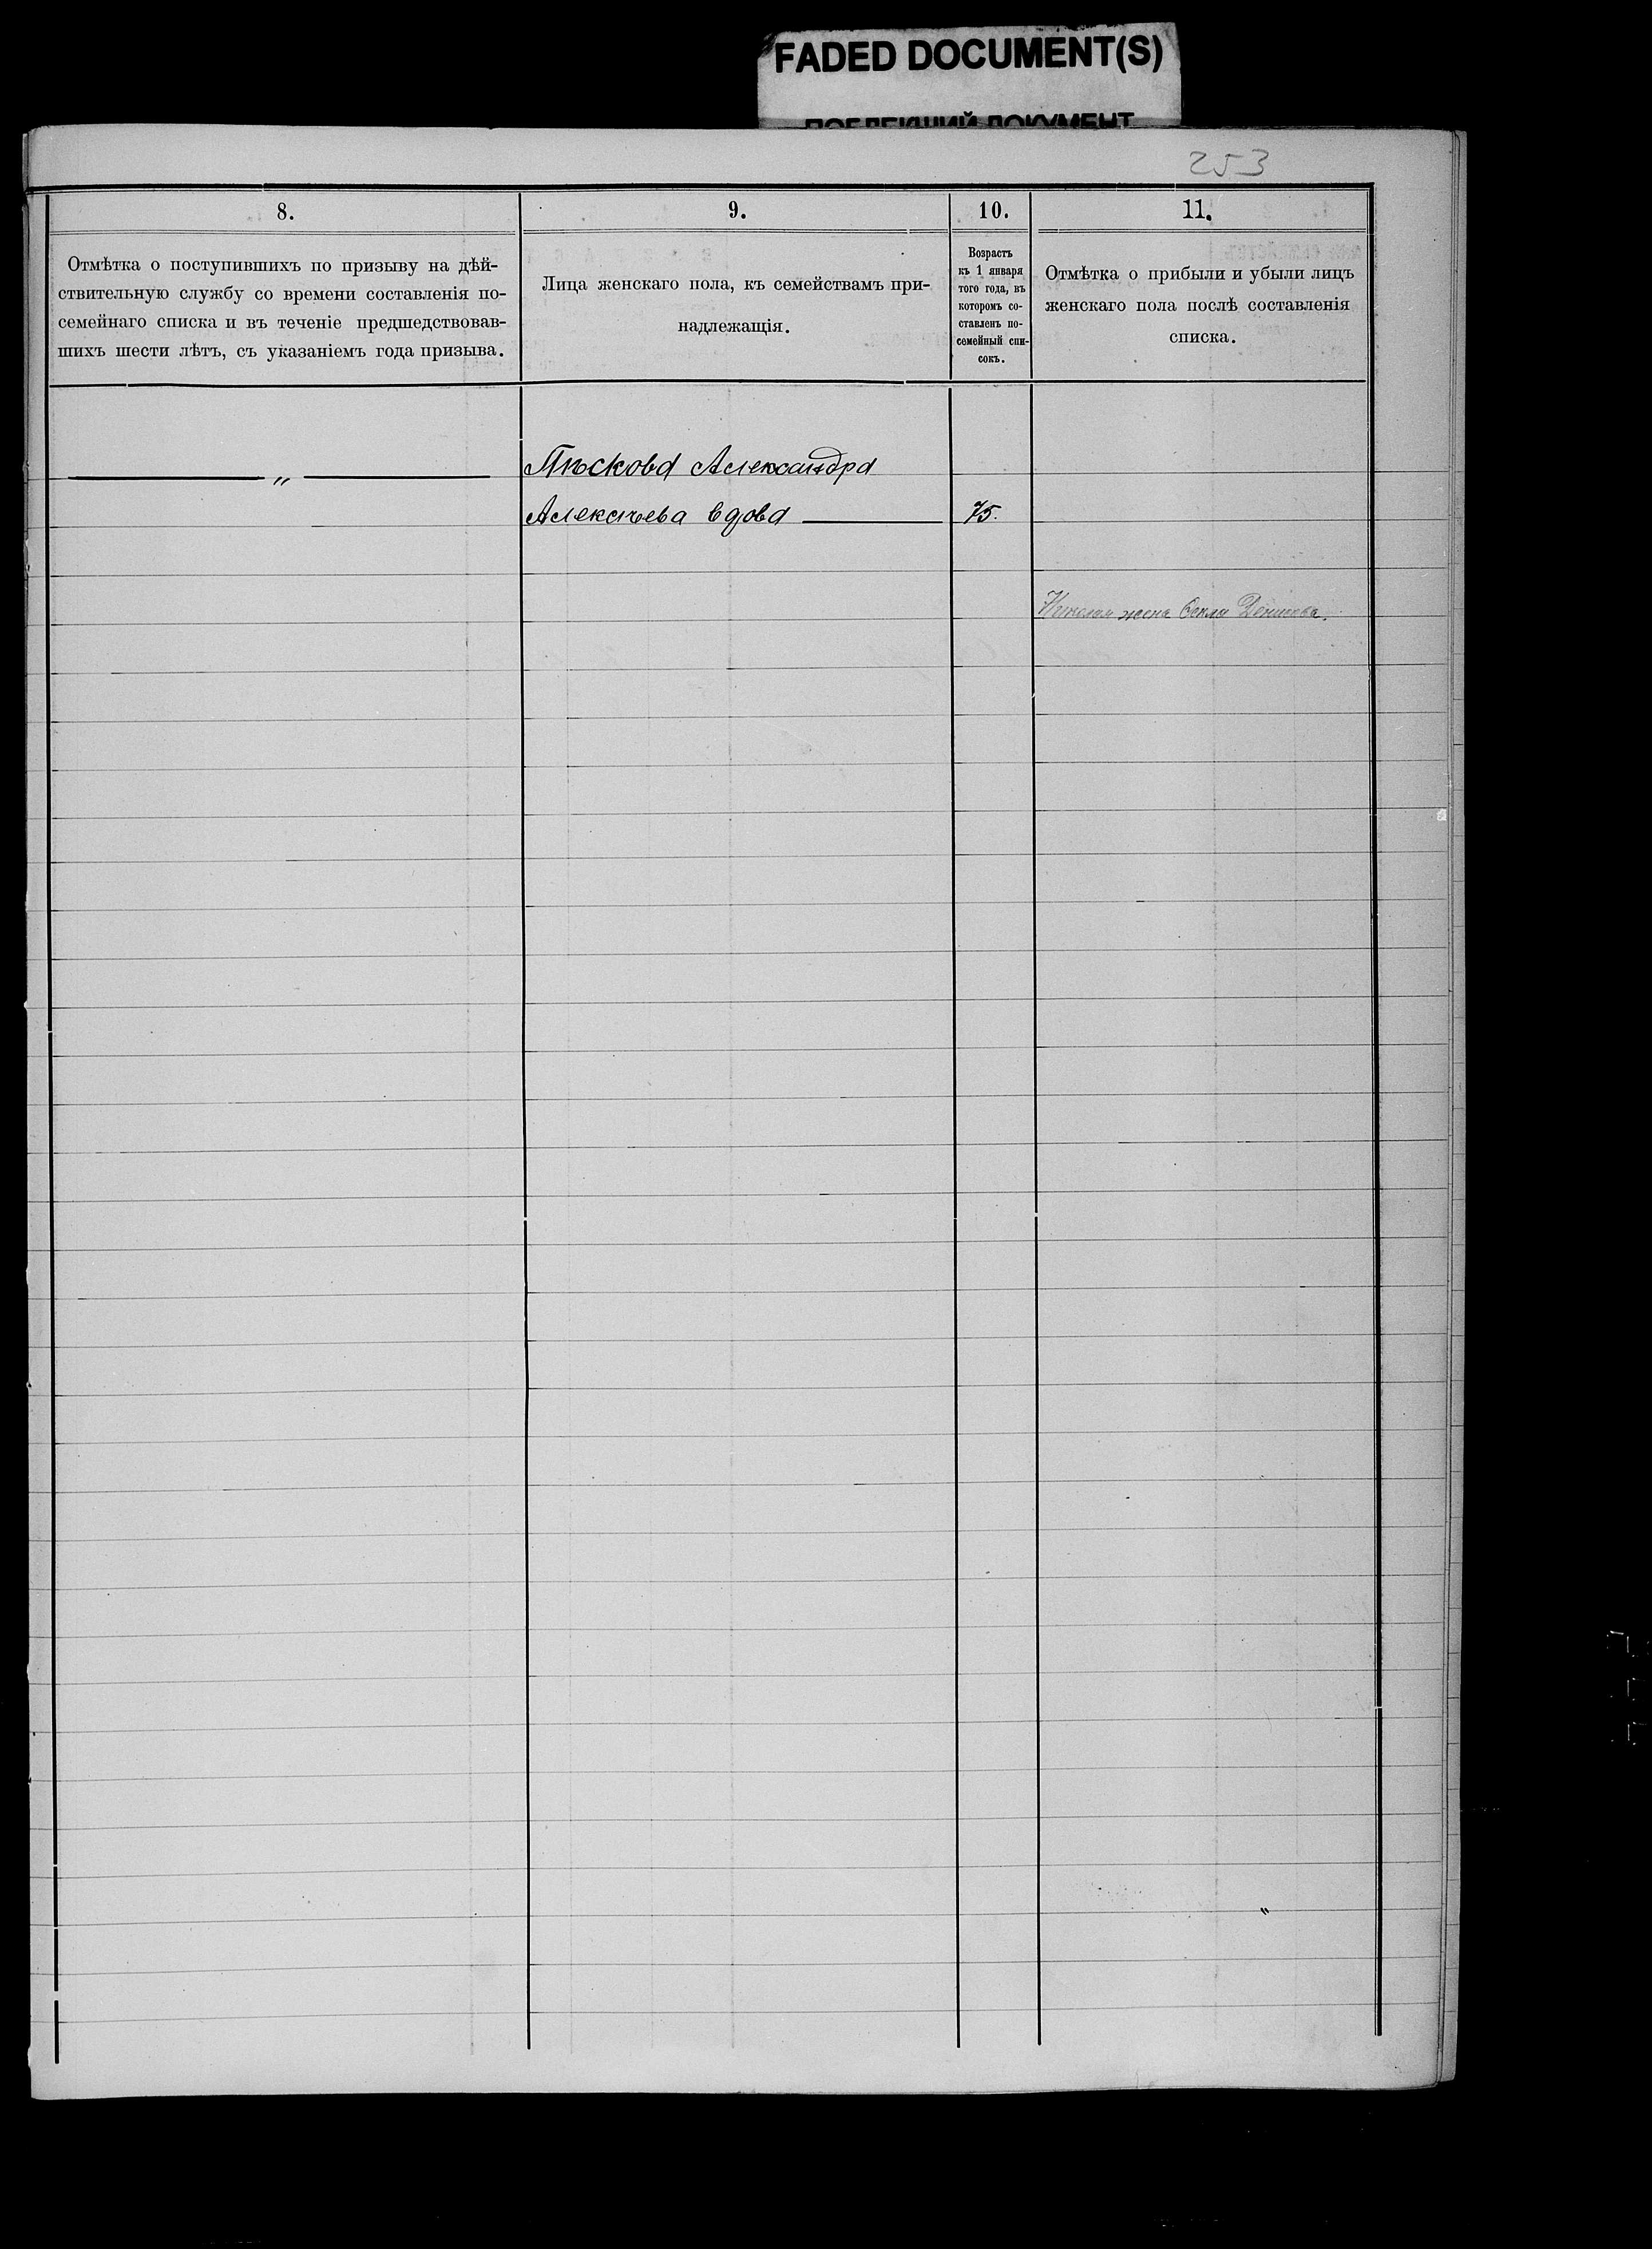 FADED DOCUMENT(S)
ПОБЛЕКШИЙ ДОКУМЕНТ
253
8.
9.
10.
11.
Отмѣтка о поступившихъ по призыву на дѣй-
ствительную службу со времени составленія по-
семейнаго списка и въ теченіе предшедствовав-
шихъ шести лѣтъ, съ указаніемъ года призыва.
Лица женскаго пола, къ семействамъ при-
надлежащія.
Возрастъ
къ 1 января
того года, въ
которомъ со-
ставленъ по-
семейный спи-
сокъ.
Отмѣтка о прибыли и убыли лицъ
женскаго пола послѣ составленія
списка.
„
Пѣскова Александра
Алексѣева вдова
75.
Николая жена Денисова.